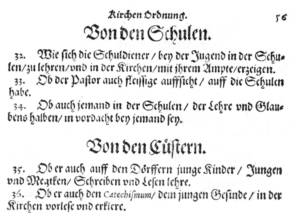 Kirchen Ordnung. 56
Von den Schulen.
32. Wie sich die Schuldiener / bey der Jugend in der Schu-
len / zu lehren / vnd in der Kirchen / mit jhrem Ampte / erzeigen.
33. Ob der Pastor auch fleissige auffsicht / auff die Schulen
habe.
34. Ob auch jemand in der Schulen / der Lehre vnd Glau-
bens halben / in vordacht bey jemand sey.
Von den Cüstern.
35. Ob er auch auff den Dörffern junge Kinder / Jungen
vnd Megtken / Schreiben vnd Lesen lehre.
36. Ob er auch den Catechismum / dem jungen Gesinde / in der
Kirchen vorlese vnd erklere.